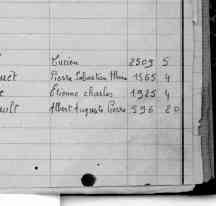 Lucien 2509 5
Pierre Sébastien 1565 4
Etienne Charles 1925 4
Albert Auguste Pierre 596 20